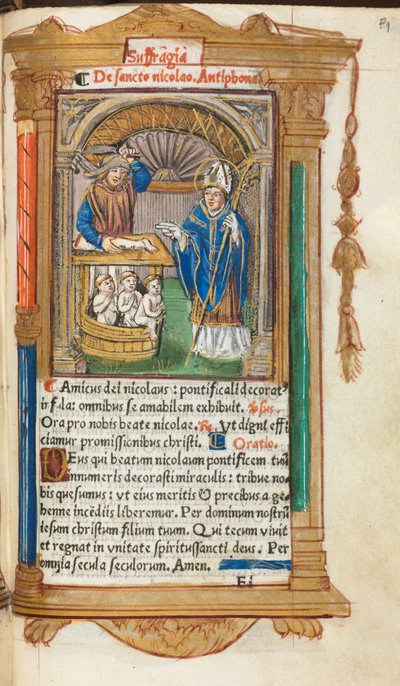 Suffragia
De sancto nicolao. Antiphona
Amicus dei nicolaus: pontificali decorat⁹
ifula: omnibus se amabilem exhibuit.
Ora pro nobis beate nicolae. Vt digni effi
ciamur promissionibus christi. Oratio.
DEus qui beatum nicolaum pontificem tuũ
innumeris decorasti miraculis: tribue no-
bis quesumus: vt eius meritis & precibus a ge-
henne incẽdiis liberemur. Per dominum nostrũ
iesum christum filium tuum. Qui tecum viuit
et regnat in vnitate spiritussancti deus. Per
omnia secula seculorum. Amen.